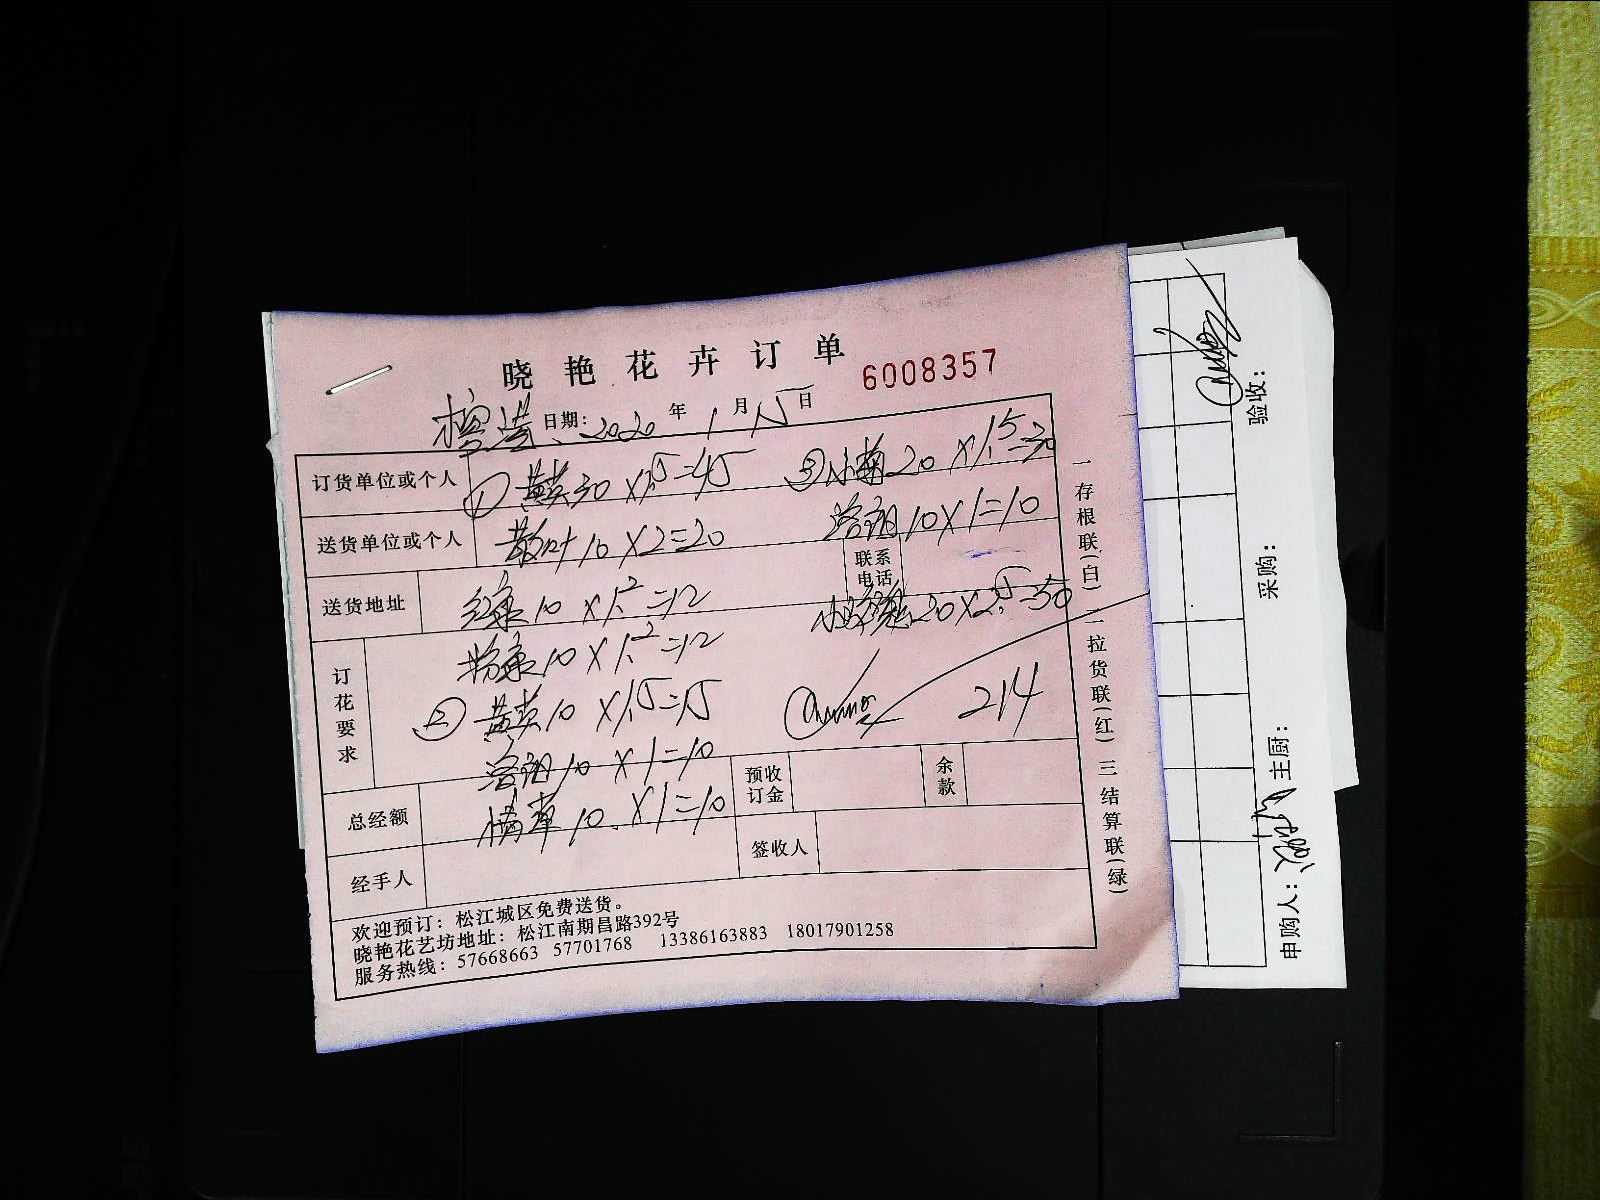 晓艳花卉订单
6008357
日期: 2020 年 1 月 15 日
订货单位或个人
① 黄英 30 × 1.5 = 45
③ 小菊 20 × 1.5 = 30
送货单位或个人
散叶 10 × 2 = 20
洛阳 10 × 1 = 10
联系电话
送货地址
红康 10 × 1.2 = 12
20 × 2.5 = 50
订花要求
粉康 10 × 1.2 = 12
② 黄英 10 × 1.5 = 15
214
洛阳 10 × 1 = 10
预收订金
余款
总经额
情草 10 × 1 = 10
签收人
经手人
欢迎预订：松江城区免费送货。
晓艳花艺坊地址：松江南期昌路392号
服务热线：57668663 57701768 13386163883 18017901258
一存根联(白) 二拉货联(红) 三结算联(绿)
申购人：
主厨：
采购：
验收：